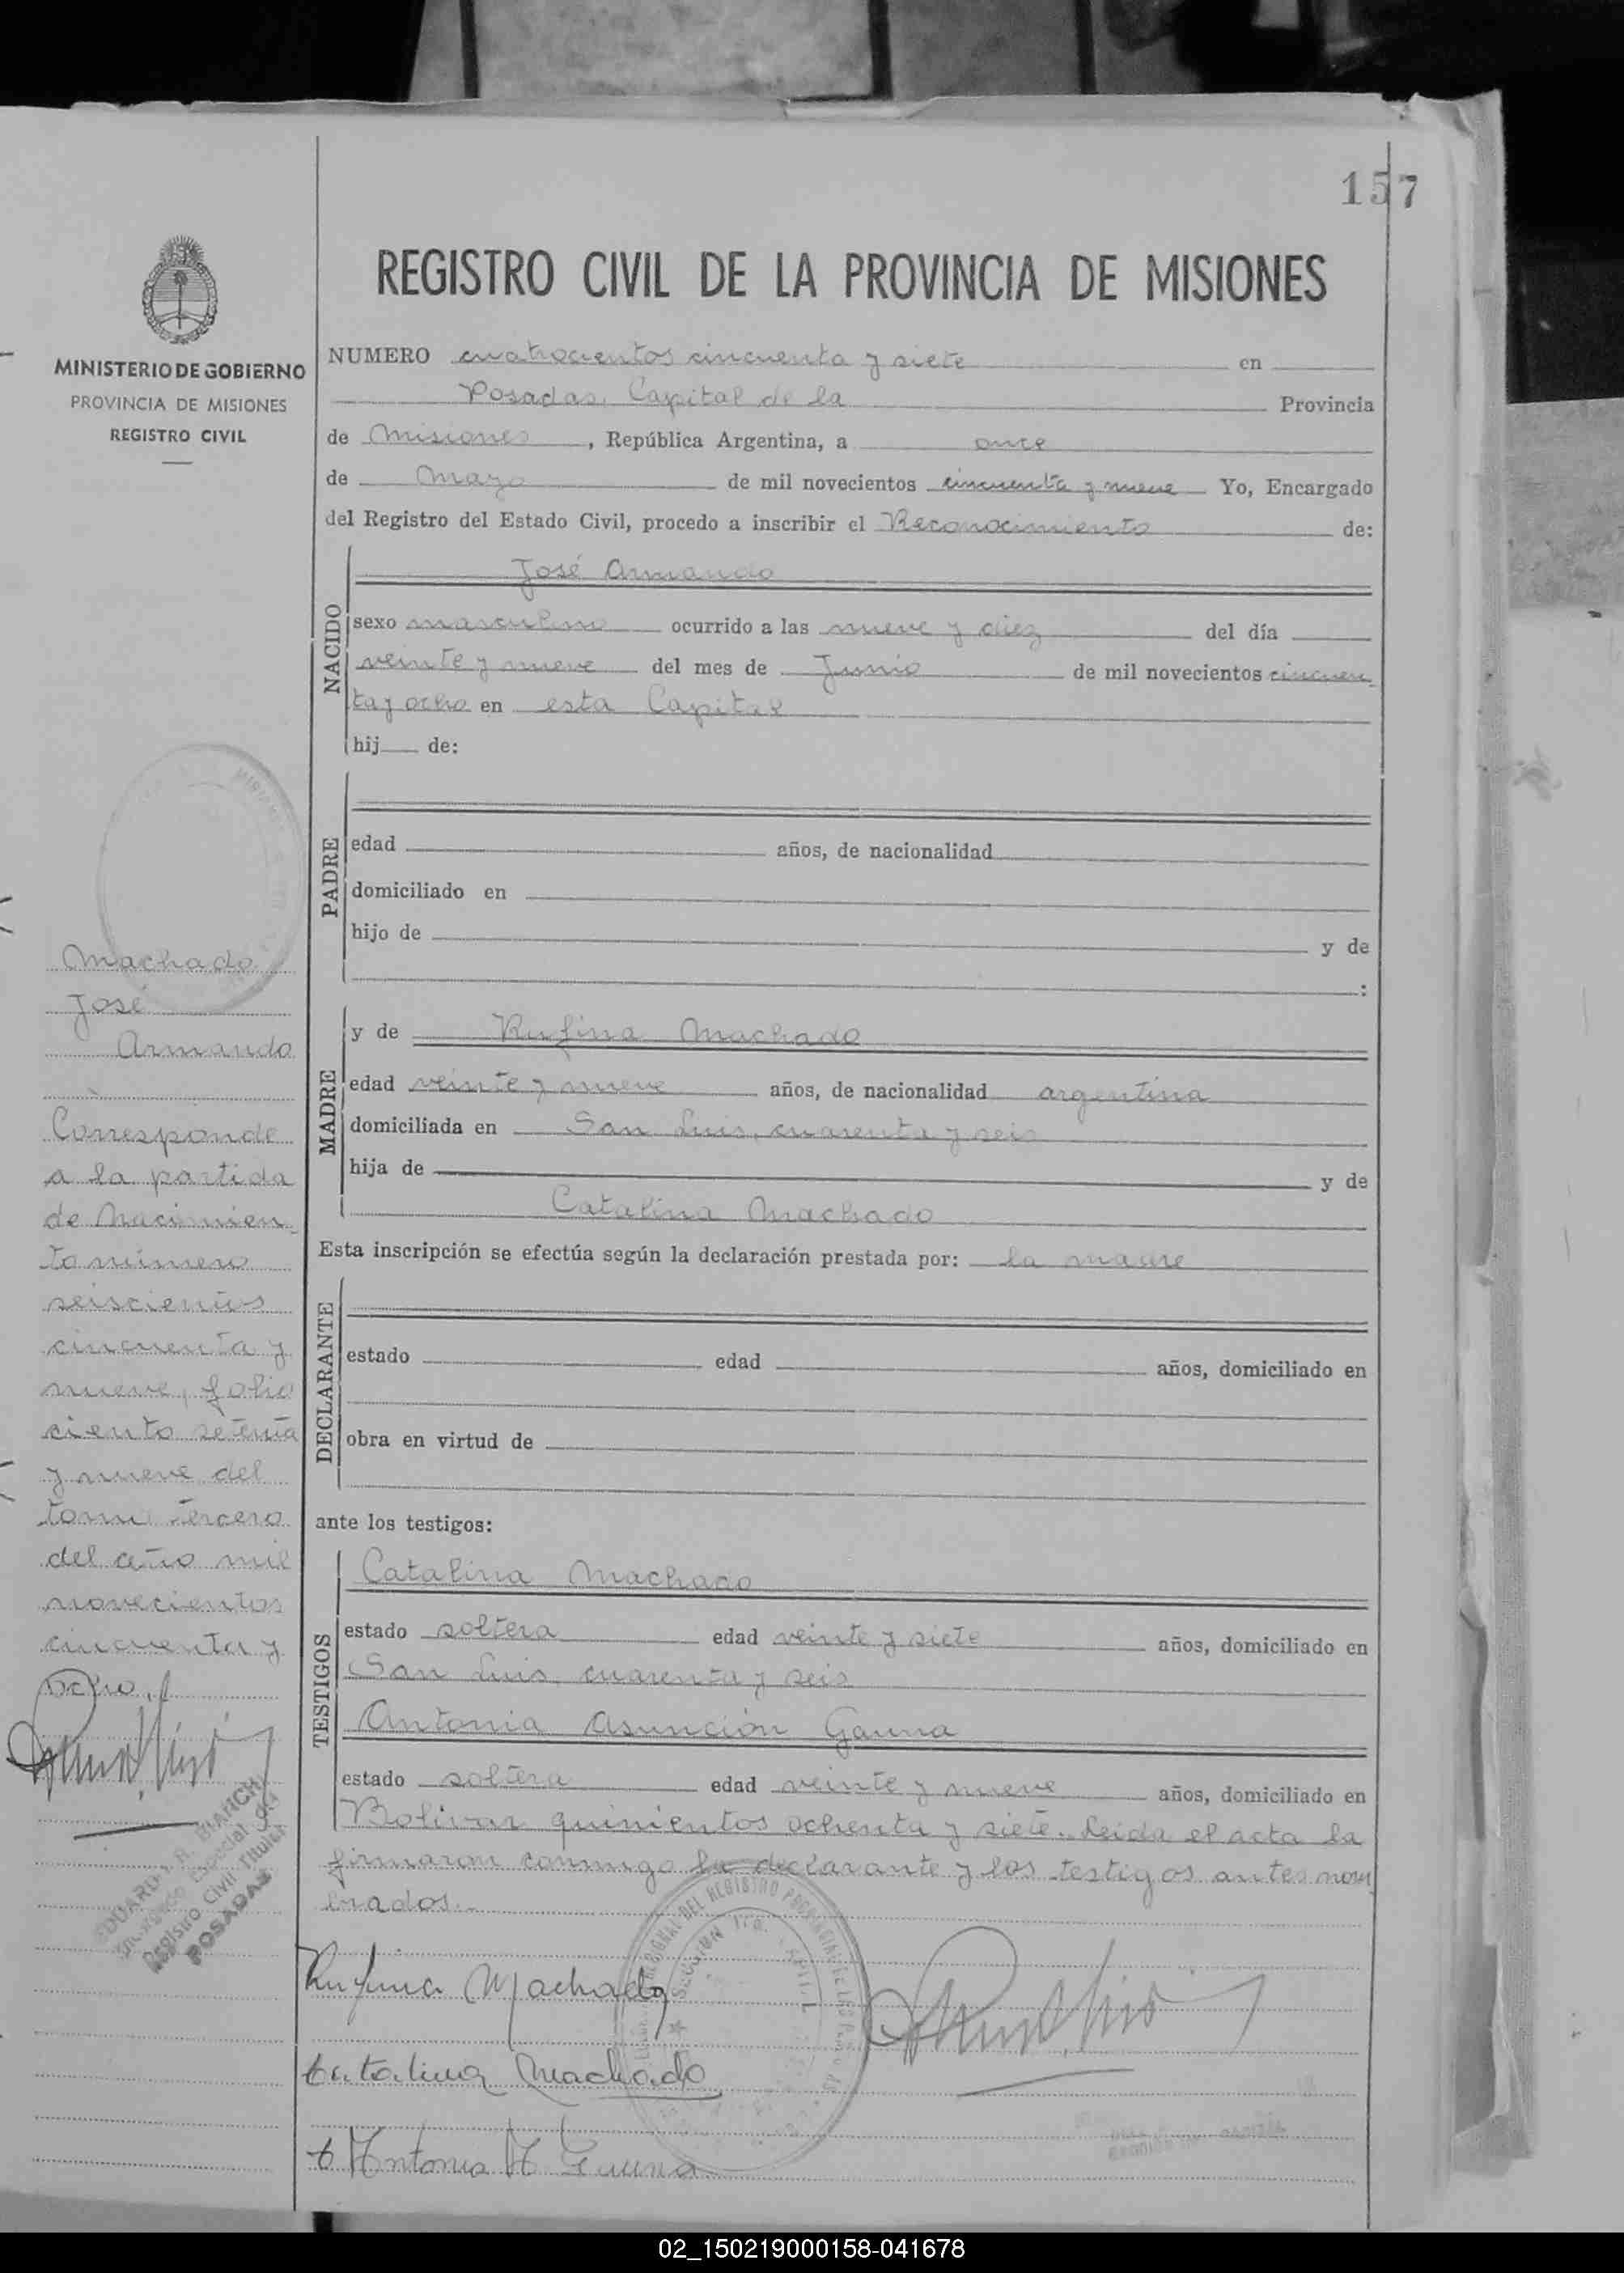 157
REGISTRO CIVIL DE LA PROVINCIA DE MISIONES
MINISTERIO DE GOBIERNO
PROVINCIA DE MISIONES
REGISTRO CIVIL
NUMERO cuatrocientos cincuenta y siete en
Posadas, Capital de la Provincia
de Misiones, República Argentina, a once
de Mayo de mil novecientos cincuenta y nueve Yo, Encargado
del Registro del Estado Civil, procedo a inscribir el Reconocimiento de:
NACIDO
José Armando
sexo masculino ocurrido a las nueve y diez del día
veinte y nueve del mes de Junio de mil novecientos cincuen
ta y ocho en esta Capital
hij de:
PADRE
edad años, de nacionalidad
domiciliado en
hijo de y de
:
MADRE
y de Rufina Machado
edad veinte y nueve años, de nacionalidad argentina
domiciliada en San Luis, cuarenta y seis
hija de y de
Catalina Machado
Esta inscripción se efectúa según la declaración prestada por: la madre
DECLARANTE
estado edad años, domiciliado en
obra en virtud de
ante los testigos:
TESTIGOS
Catalina Machado
estado soltera edad veinte y siete años, domiciliado en
San Luis, cuarenta y seis
Antonia Asunción Gauna
estado soltera edad veinte y nueve años, domiciliado en
Bolivar quinientos ochenta y siete. Leida el acta la
firmaron conmigo la declarante y los testigos antes nom
brados.
Rufina Machado
Catalina Machado
Antonia A Gauna
Machado
José
Armando
Corresponde
a la partida
de Nacimien
to número
seiscientos
cincuenta y
nueve, folio
ciento setenta
y nueve del
tomo tercero
del año mil
novecientos
cincuenta y
ocho.
EDUARDO R. BIANCHI
Encargado Especial del
Registro Civil Titular
POSADAS
02_150219000158-041678